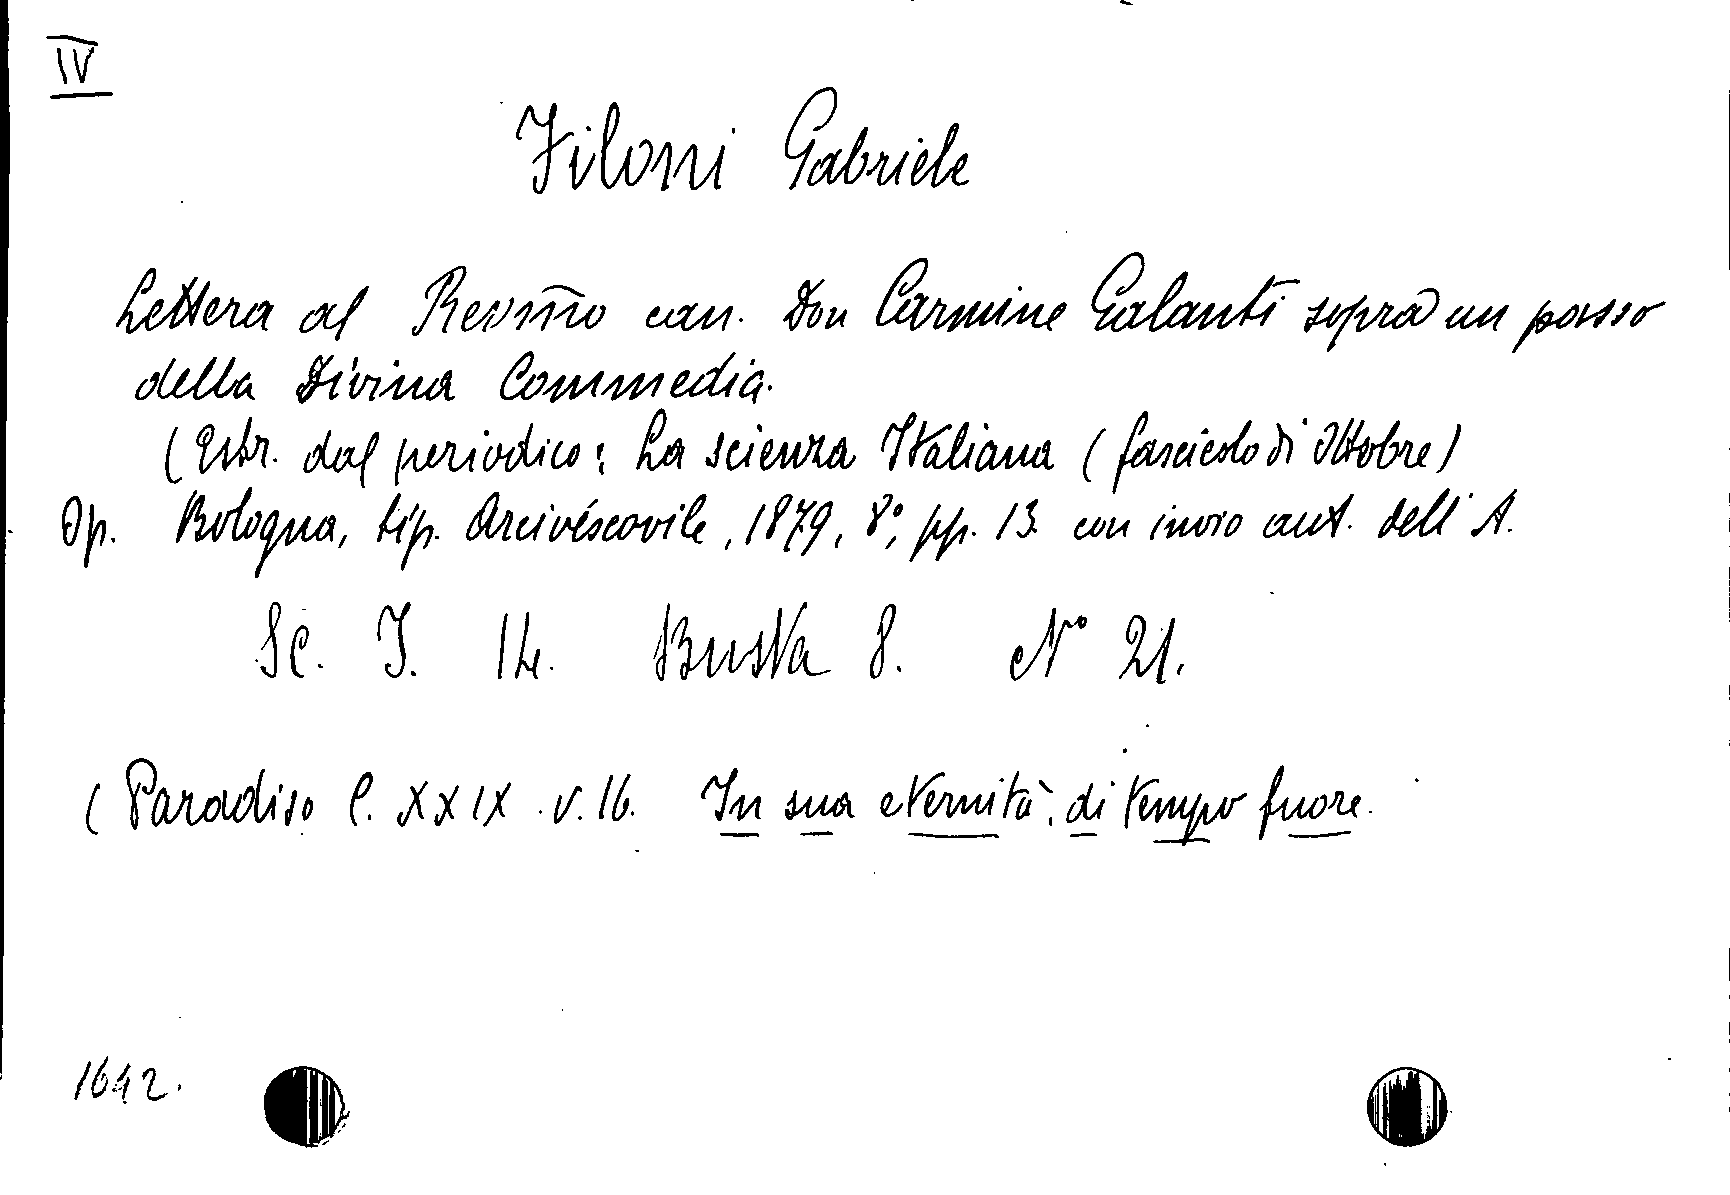 IV
Filoni Gabriele
Lettera al Revm̃o can. Don Carmine Galanti sopra un passo
della Divina Commedia.
(Estr. dal periodico: La scienza Italiana (fascicolo di Ottobre)
Op. Bologna, tip. Arcivescovile, 1879, 8°, pp. 13. con invio aut. dell'A.
Sc. I. 14. Busta 8. N° 21.
(Paradiso C. XXIX. v. 16. In sua eternità, di tempo fuore.
1642.